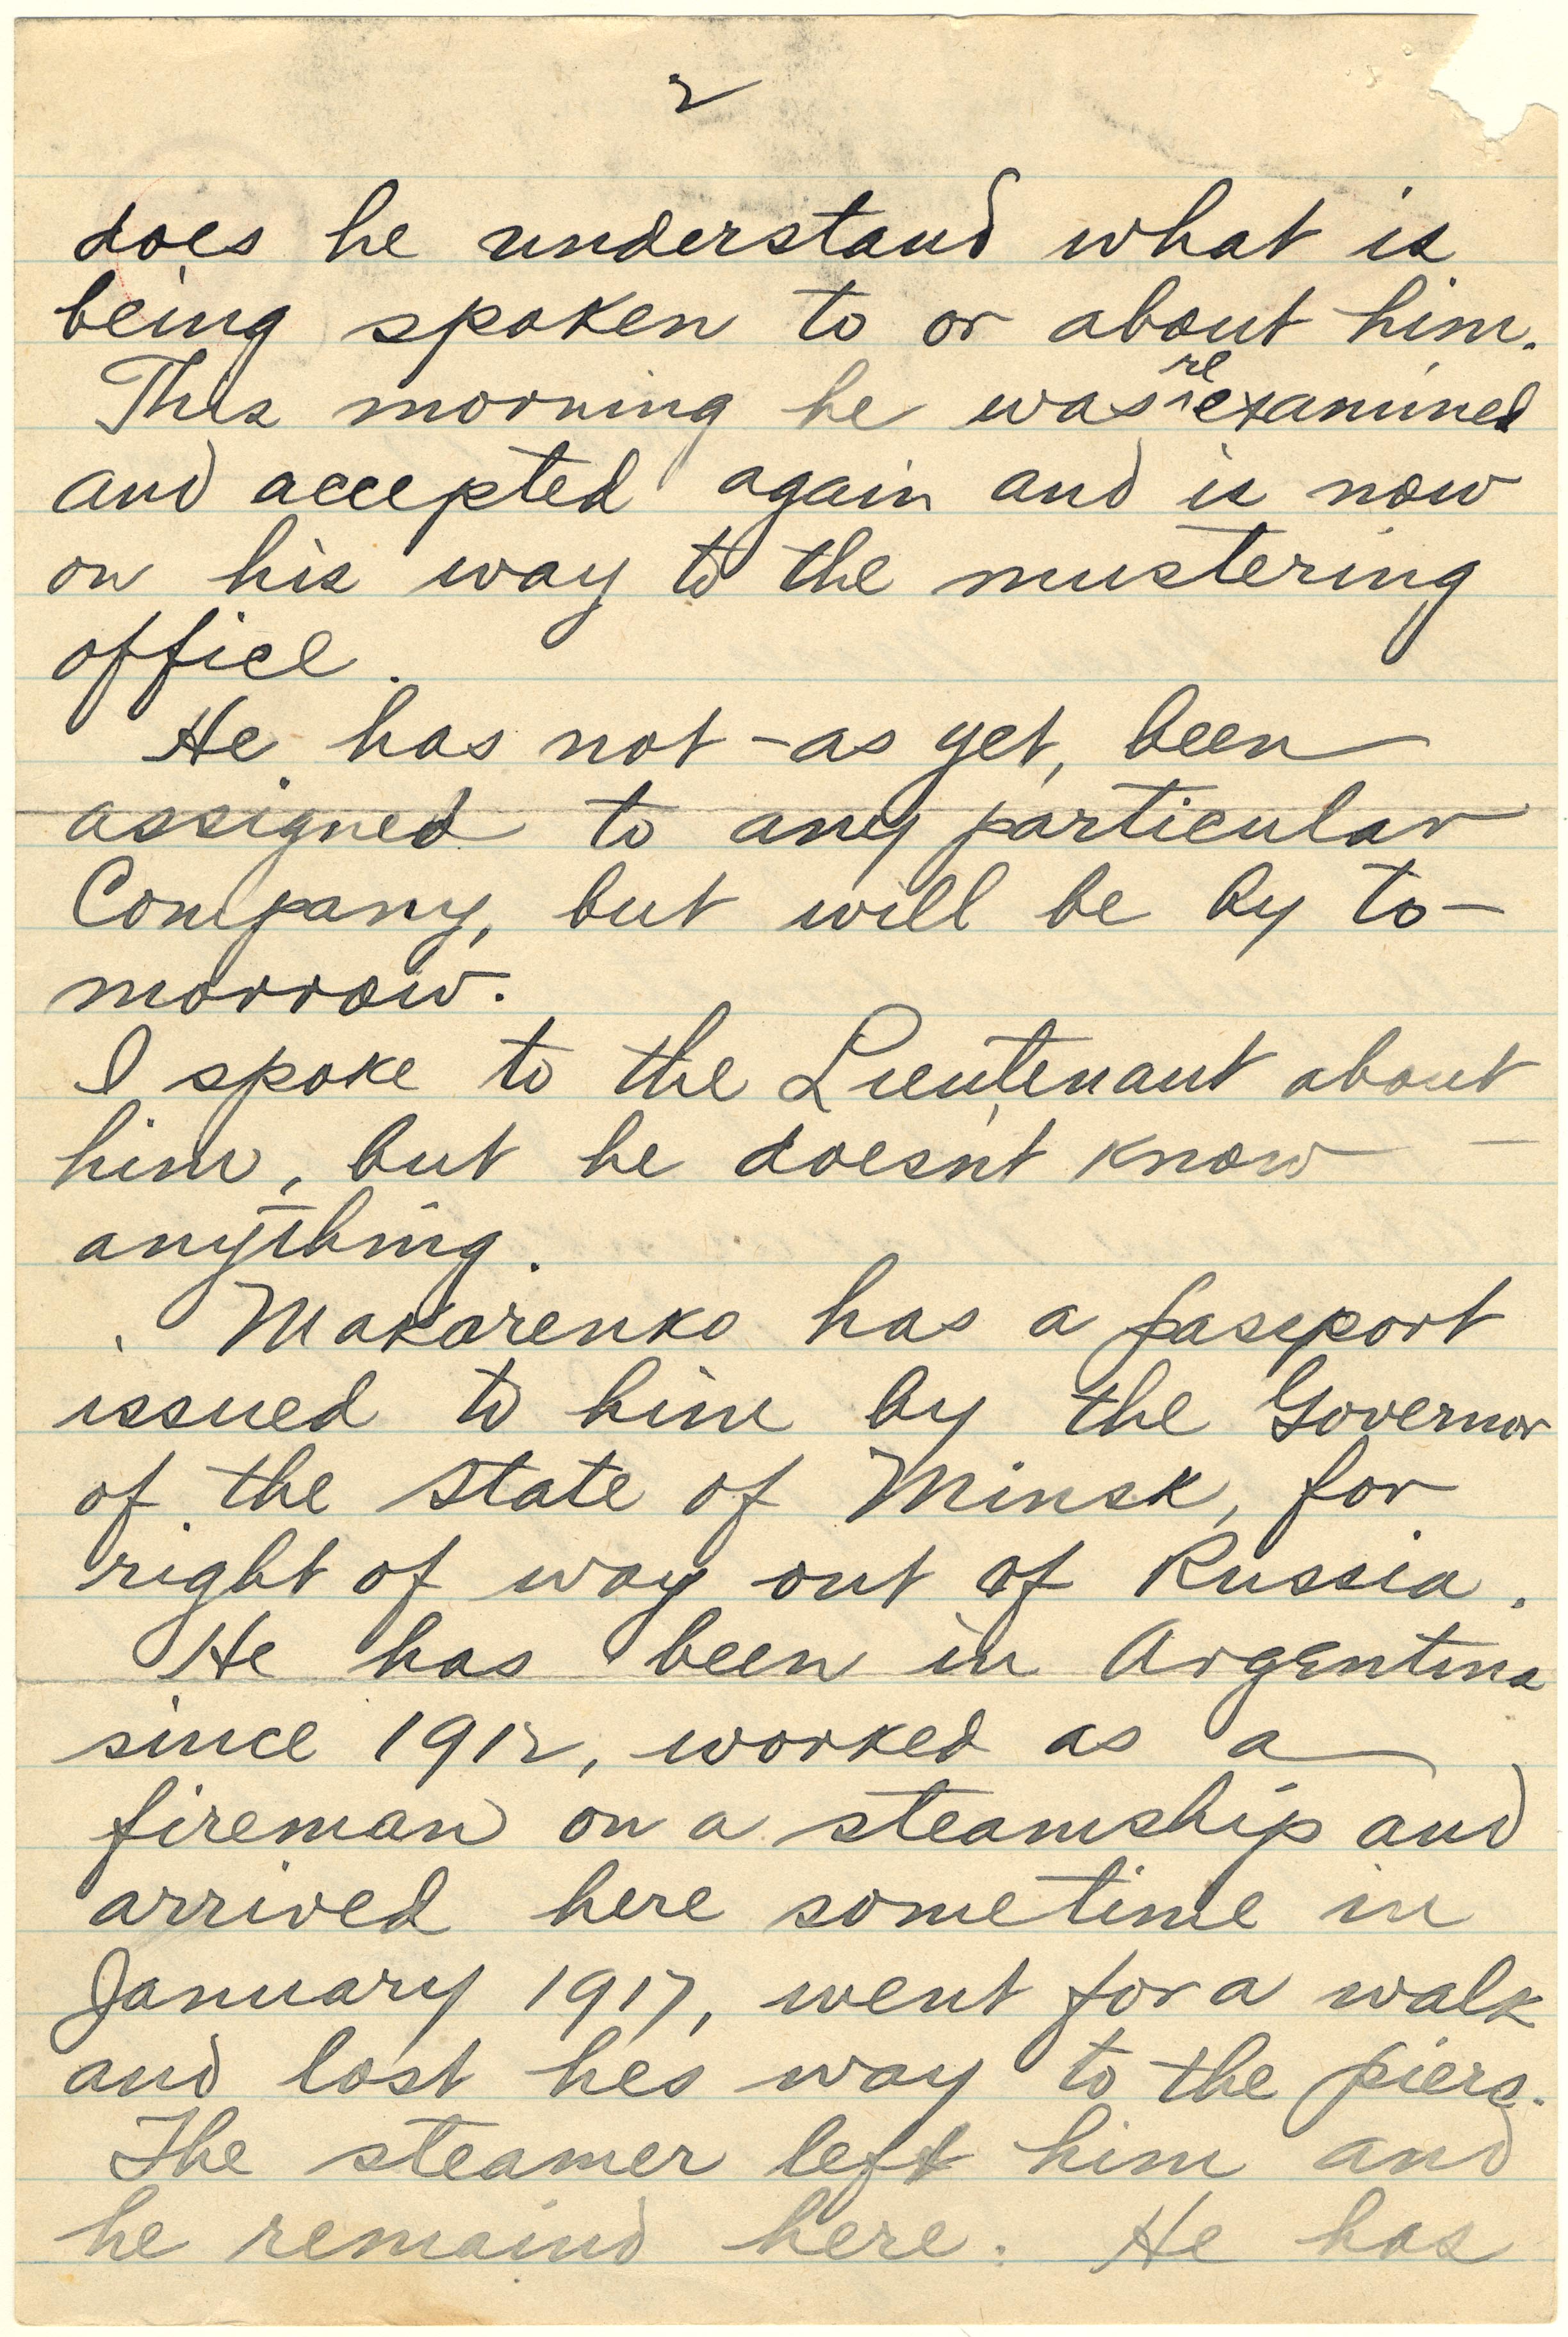 2
does he understand what is
being spoken to or about him.
This morning he was re examined
and accepted again and is now
on his way to the mustering
office.
He has not - as yet, been
assigned to any particular
Company, but will be by to-
morrow.
I spoke to the Lieutenant about
him, but he doesnt know -
anything.
Makarenko has a passport
issued to him by the Governor
of the State of Minsk, for
right of way out of Russia.
He has been in Argentina
since 1912, worked as a
fireman on a steamship and
arrived here sometime in
January 1917, went for a walk
and lost hes way to the piers.
The steamer left him and
he remaind here. He has